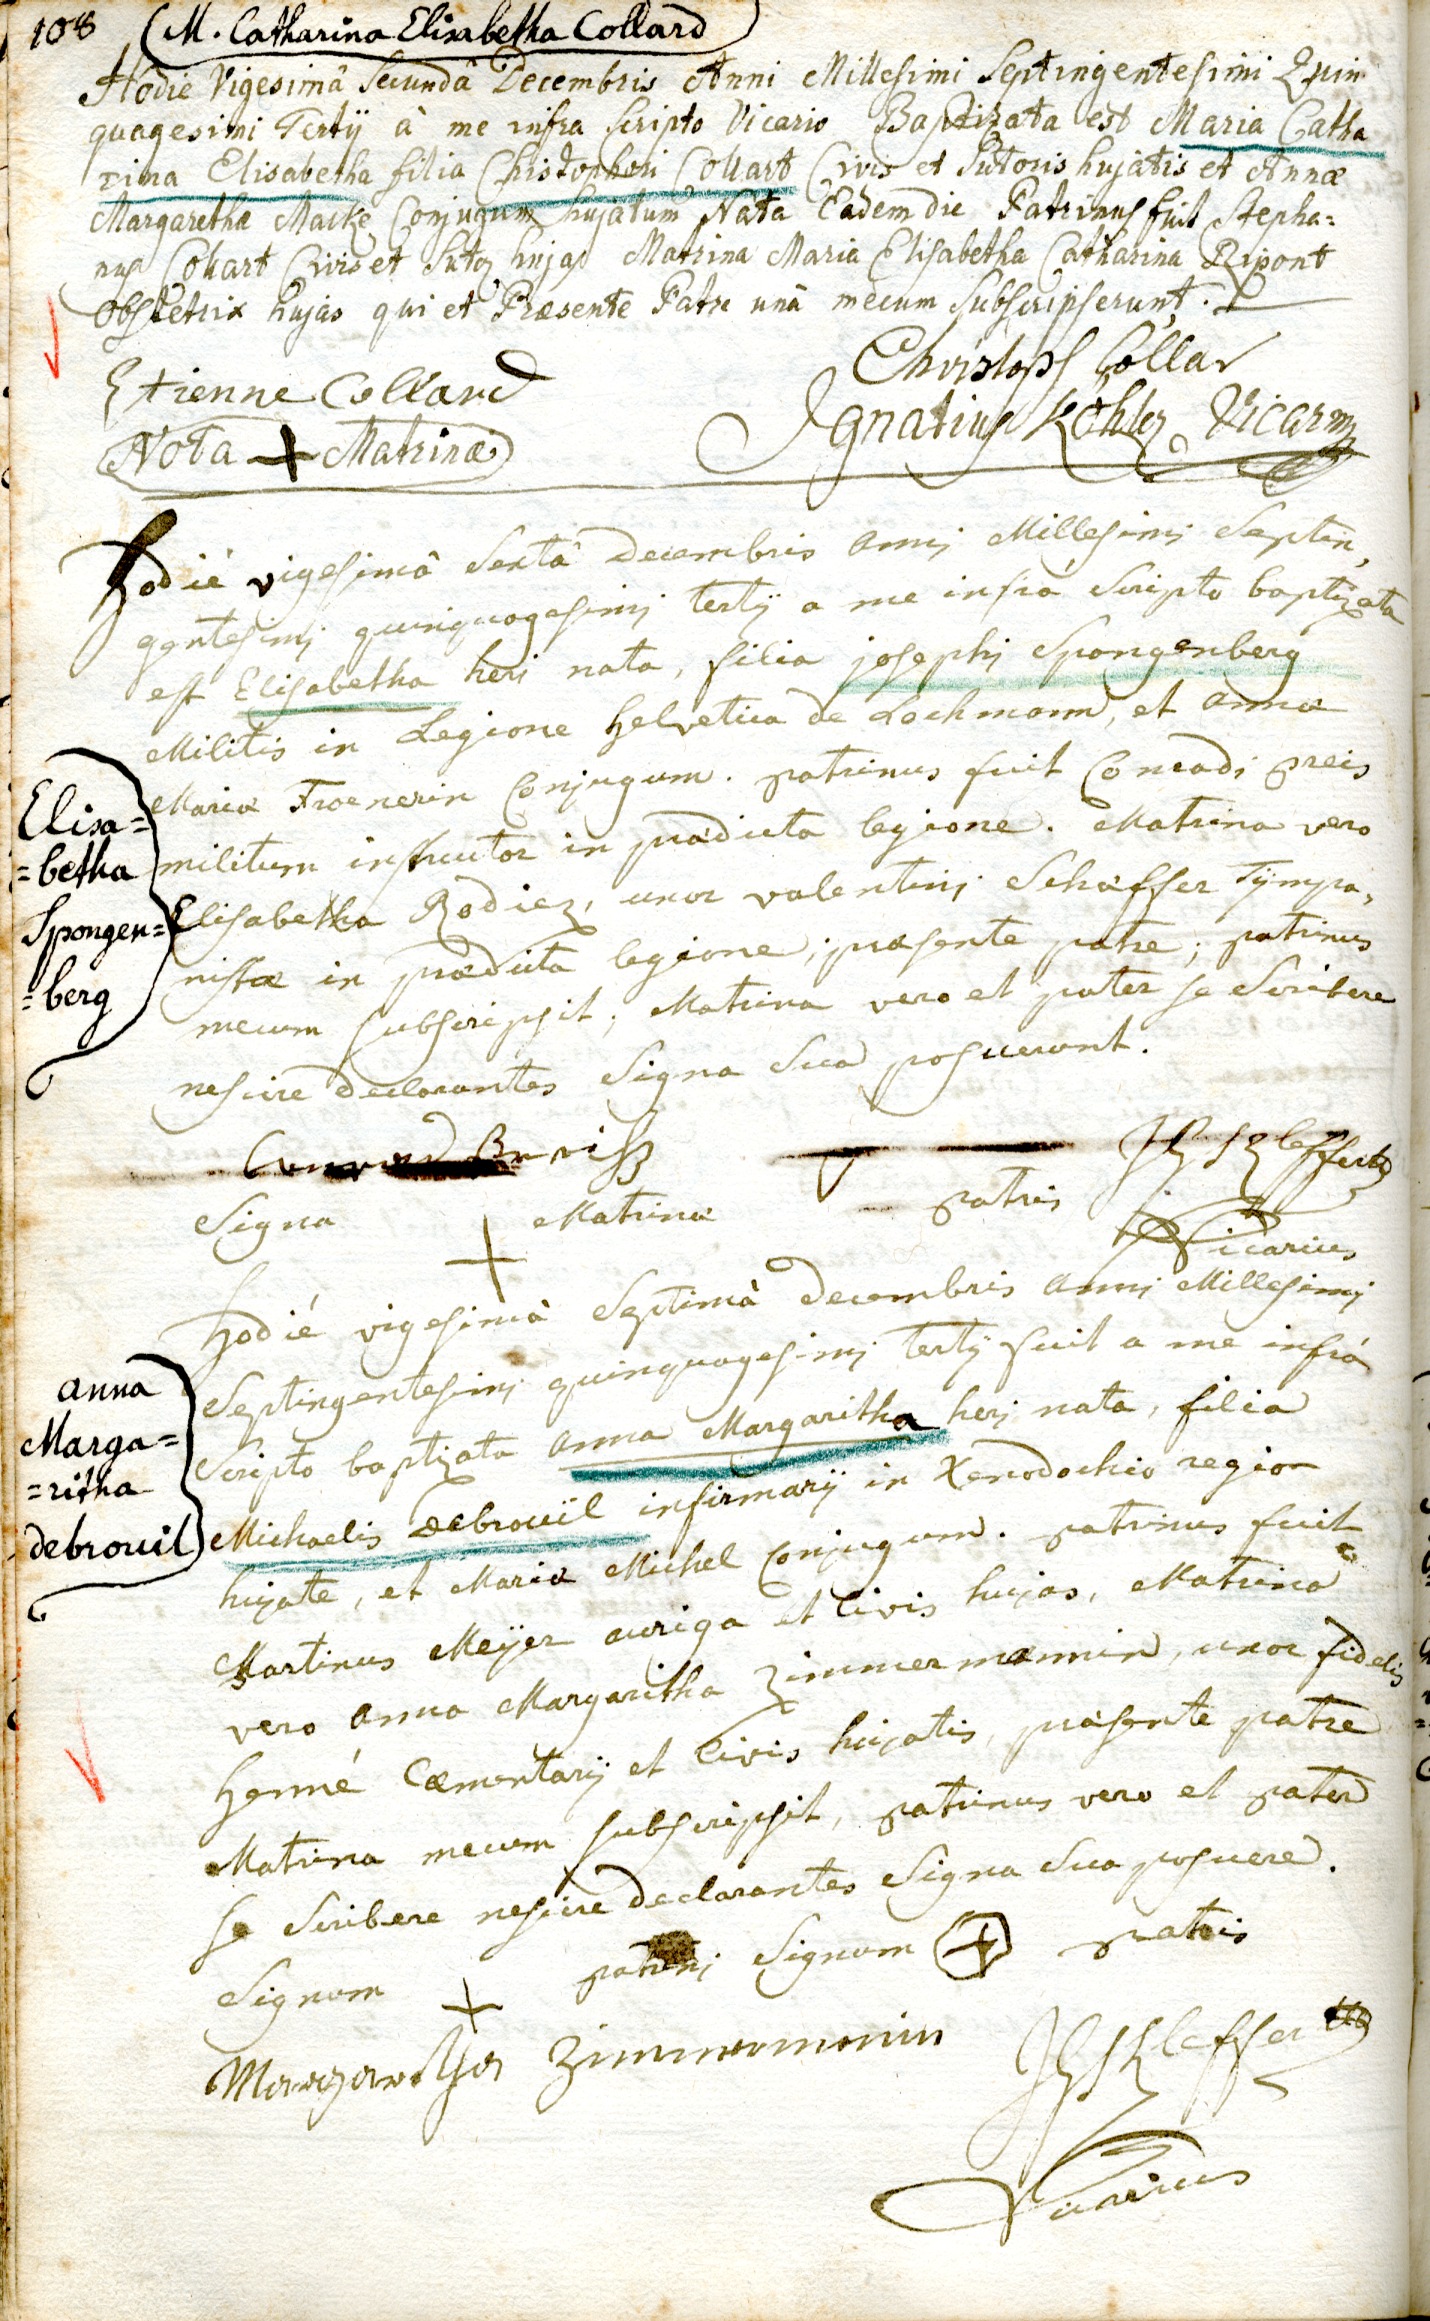 108 M. Catharina Elisabetha Collard
Hodie Vigesimâ Secundâ Decembris Anni Millesimi Septingentesimi Quin
quagesimi Tertij à me infra Scripto Vicario Baptizata est Maria Catha
rina Elisabetha filia Christophori Collart Civis et Sutoris hujatis et Annæ
Margarethæ Macke Conjugum hujatum Nata Eadem die Patrinus fuit Stepha=
nus Collart Civis et Sutor hujas Matrina Maria Elisabetha Catharina Ripont
Obstetrix hujas qui et Præsente Patre unâ mecum Subscripserunt.
Etienne Collard
Christoph Collar
Nota + Matrinæ
Ignatius Köhler Vicarius
hodié vigesimâ Sextâ decembris anni Millesimi Septin,
gentesimi quinquagesimi tertij a me infrá Scripto baptizata
est Elisabetha heri nata, filia josephi Spongenberg
Militis in Legione helvetica de Lochmann, et annæ
Mariæ Troenerin Conjugum. patrinus fuit Conradi preis
militum instructor in prædicta legione. Matrina vero
Elisabetha Rodiez, uxor valentini Schæffer Tÿmpa,
nistæ in prædicta legione; præsente patre; patrinus
mecum subscripsit; Matrina vero et pater se Scribere
nescire declarantes Signa Sua posuerunt.
Elisa=
=betha
Spongen=
=berg
Conrad Breiß
Signa + Matrinæ patris
Vicarius
hodié vigesimâ Septimâ decembris anni Millesimi
Septingentesimi quinquagesimi tertij fuit a me infrá
Scripto baptizata anna Margaritha heri nata, filia
Michaelis debrouïl infirmarij in Xenodochio regio
hujate, et Mariæ Michel Conjugum. patrinus fuit
Martinus Meÿer auriga et Civis hujas, Matrina
vero anna Margaritha Zimmermannin, uxor fidelis
henné Cæmentarij et Civis hujatis, præsente patre
Matrina mecum subscripsit, patrinus vero et pater
se Scribere nescire declarantes Signa Sua posuere.
anna
Marga=
=ritha
debrouil
Signum + patrini Signum + patris
Margaretha Zimmermanin
Vicarius